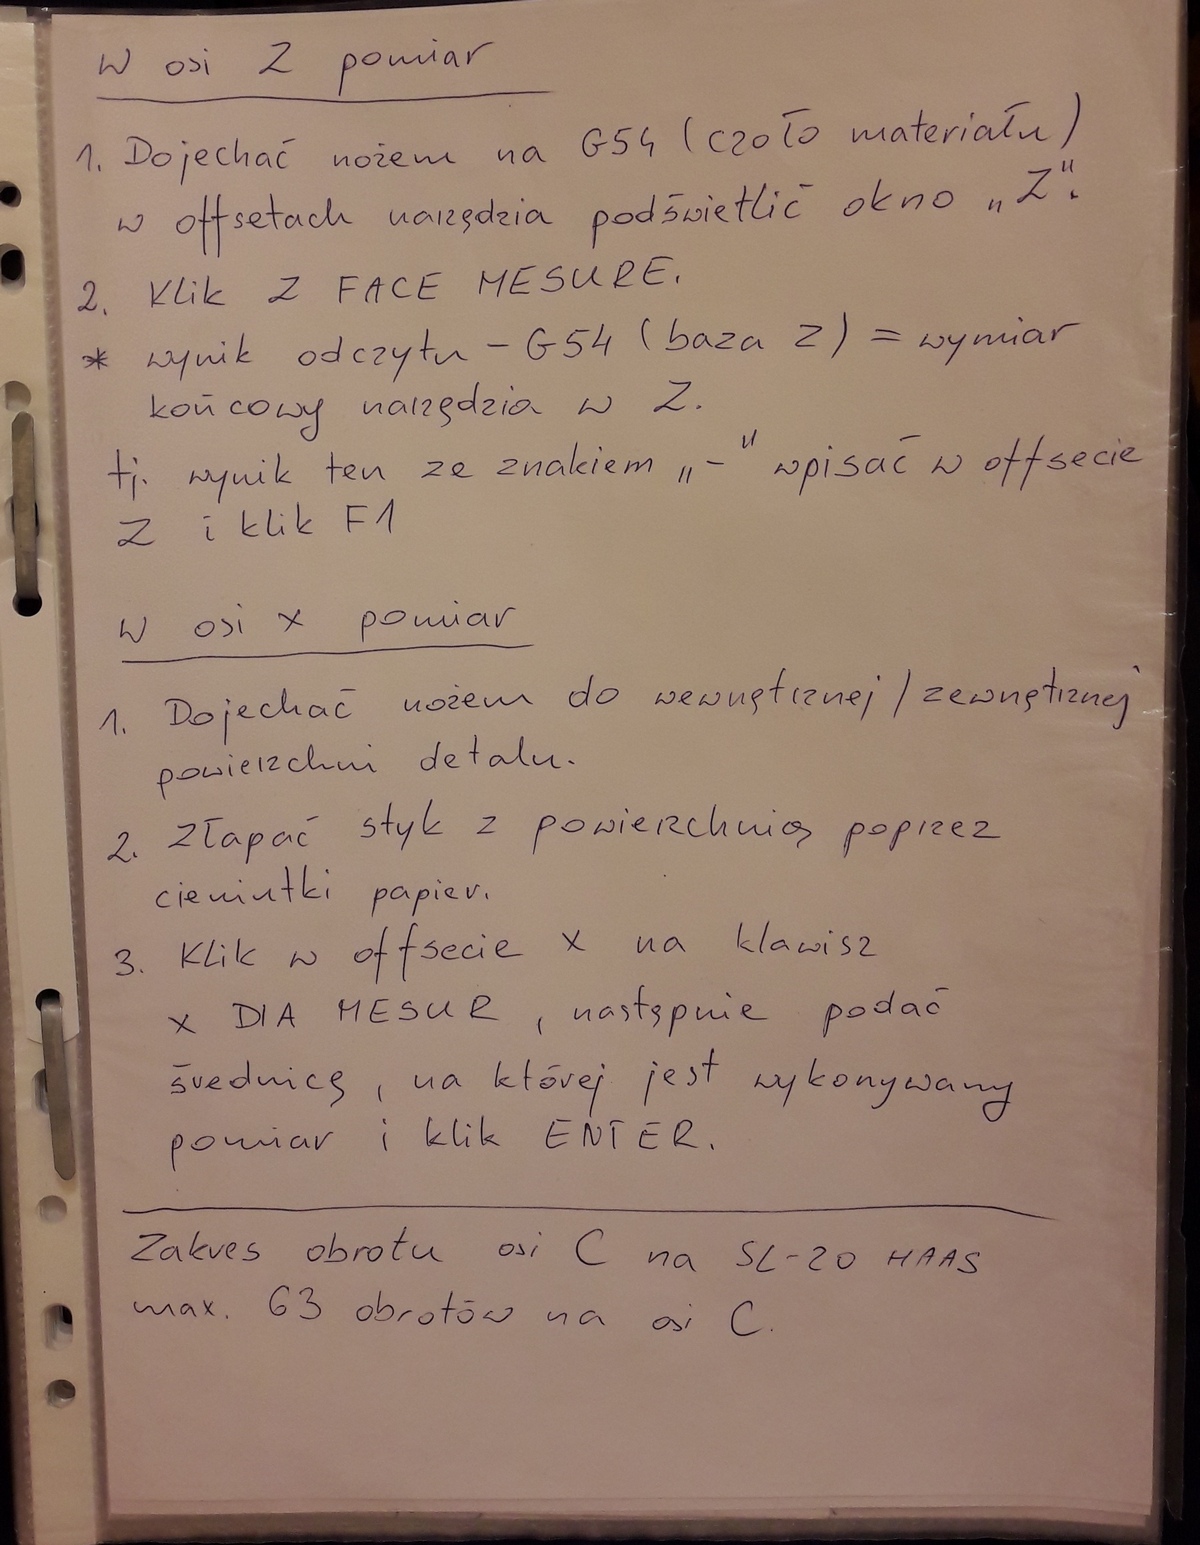 W osi Z pomiar
1. Dojechać nożem na G54 (czoło materiału)
w offsetach narzędzia podświetlić okno „Z".
2. Klik Z FACE MESURE.
* wynik odczytu - G54 (baza Z) = wymiar
końcowy narzędzia w Z.
tj. wynik ten ze znakiem „-" wpisać w offsecie
Z i klik F1
W osi X pomiar
1. Dojechać nożem do wewnętrznej / zewnętrznej
powierzchni detalu.
2. Złapać styk z powierzchnią poprzez
cieniutki papier.
3. Klik w offsecie X na klawisz
X DIA MESUR, następnie podać
średnicę, na której jest wykonywany
pomiar i klik ENTER.
Zakres obrotu osi C na SL-20 HAAS
max. 63 obrotów na osi C.